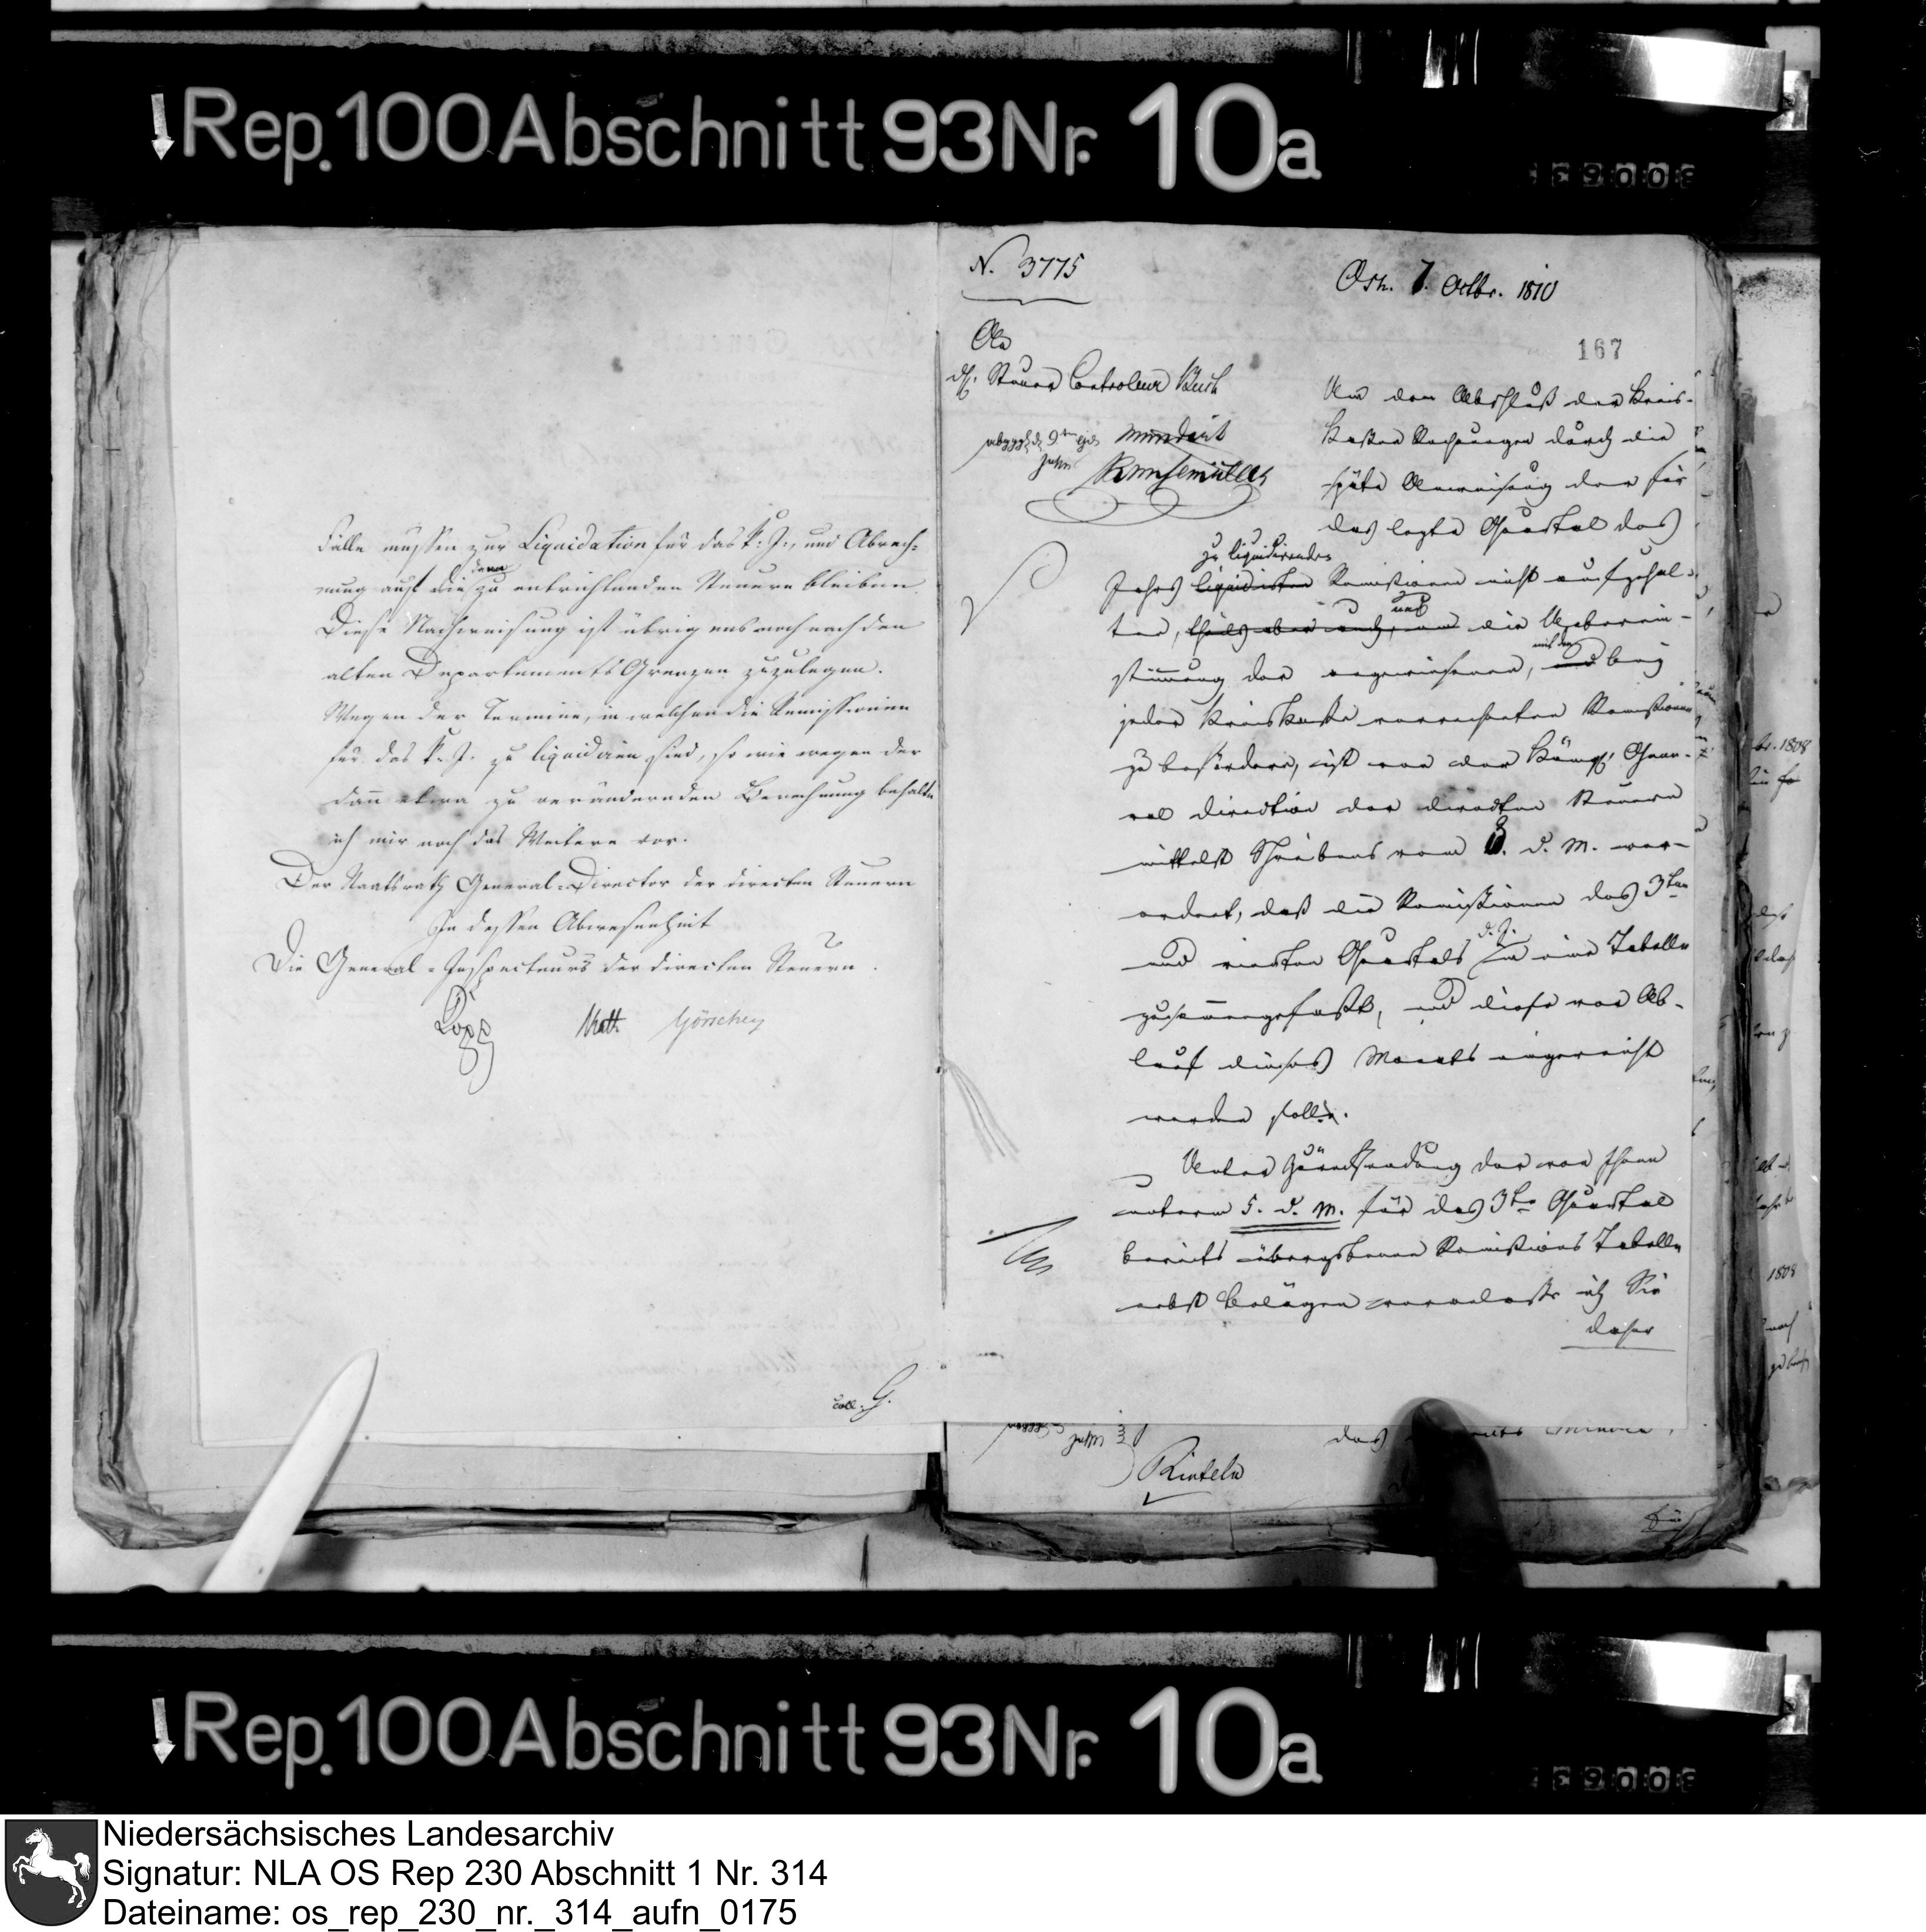 Rep. 100 Abschnitt 93 Nr. 10a
Fälle müssen zur Liquidation für das k. J., und Abrech-
nung auf die dann zu entrichtenden Steuern bleiben.
Diese Nachweisung ist übrigens noch nach den
alten Departements Grenzen zuzulegen.
Wegen der Termine, in welchen die Remissionen
für das k. J. zu liquidiren sind, so wie wegen der
dann etwa zu verändernden Berechnung behalte
ich mir noch das Weitere vor.
Der Staatsrath General-Director der directen Steuern
In dessen Abwesenheit
Die General-Inspecteurs der directen Steuern.
coll. G.
N. 3775
Osn. 7. Octbr. 1810
167
An
den Steuer Controleur Buch
mundirt
Um den Abschluß der Kreis-
kassen Rechnungen durch die
späte Anweisung der für
das letzte Quartal des
Jahres liquidirten zu liquidirenden Remissionen nicht aufgehal-
ten, theils aber auch, um und die Ueberein-
stimmung der angewiesenen, und mit den bey
jeder Kreiskasse verrechneten Remissionen
zu befördern, ist von der Königl. Gene-
ral direction der directen Steuern
mittelst Schreibens vom 3. d. M. ver-
ordnet, daß die Remissionen des 3ten
und vierten Quartals d. J. in eine Tabelle
zusammengefaßt, und diese vor Ab-
lauf dieses Monats eingereicht
werden solle.
Unter Zurücksendung der von Ihnen
unterm 5. d. M. für das 3te Quartal
bereits übergebenen Remissions Tabelle
nebst Belägen veranlasse ich Sie
daher
Rinteln
Rep. 100 Abschnitt 93 Nr. 10a
Niedersächsisches Landesarchiv
Signatur: NLA OS Rep 230 Abschnitt 1 Nr. 314
Dateiname: os_rep_230_nr._314_aufn_0175